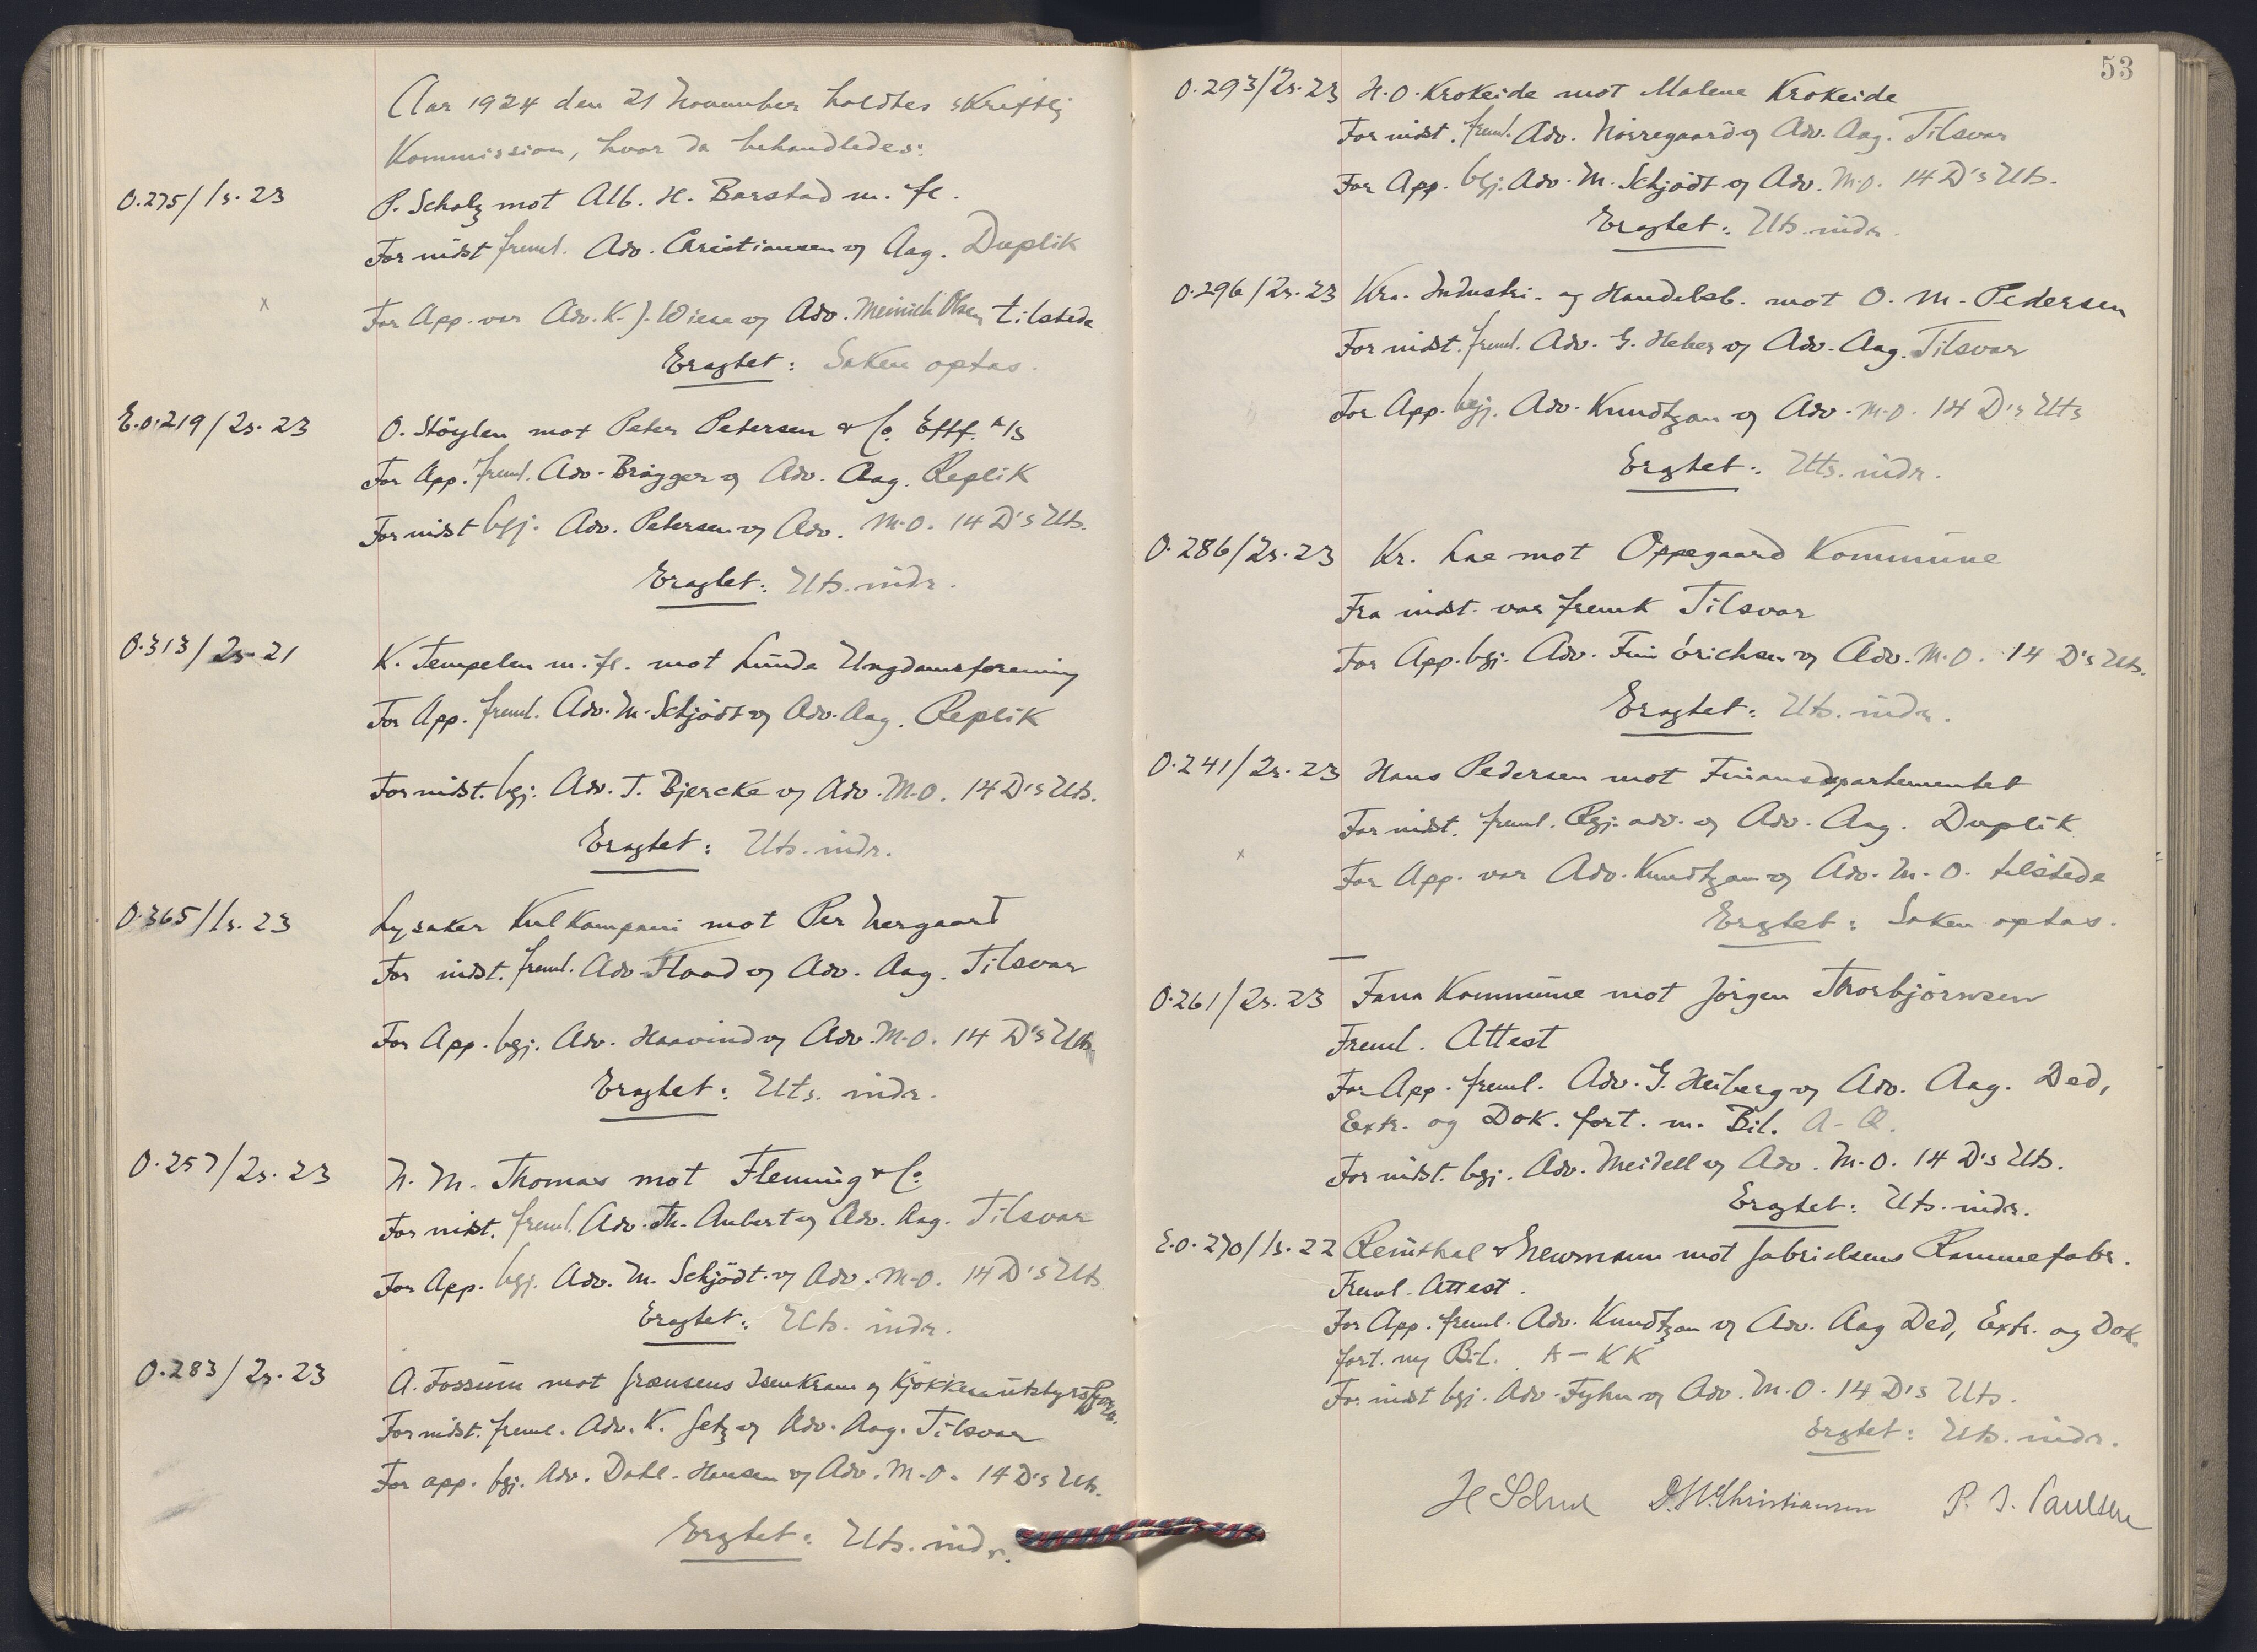 Aar 1924 den 21 November holdtes skriftlig
Kommission, hvor da behandledes:
O.275/1s.23 P. Scholz mot Alb. H. Barstad m. fl.
For indst freml. Adv. Christiansen og Aag. Duplik
x For App. var Adv. K. J. Wiese og Adv. Meinich Olsen tilstede
Eragtet: Saken optas.
E.O.219/2s.23 O. Stöylen mot Peter Petersen & Co. Eftf. A/S
For App. freml. Adv. Brögger og Adv. Aag. Replik
For indst bgj. Adv. Petersen og Adv. M.O. 14 D's Uts.
Eragtet: Uts. indr.
O.313/2s.21 K. Tempelen m. fl. mot Lunde Ungdomsforening
For App. freml. Adv. M. Schjödt og Adv. Aag. Replik
For indst. bgj. Adv. T. Bjercke og Adv. M.O. 14 D's Uts.
Eragtet: Uts. indr.
O.365/1s.23 Lysaker Kulkompani mot Per Nergaard
For indst. freml. Adv. Flood og Adv. Aag. Tilsvar
For App. bgj. Adv. Haavind og Adv. M.O. 14 D's Uts.
Eragtet: Uts. indr.
O.257/2s.23 N. M. Thomas mot Fleming & Co
For indst. freml. Adv. Th. Aubert og Adv. Aag. Tilsvar
For App. bgj. Adv. M. Schjödt og Adv. M.O. 14 D's Uts
Eragtet: Uts. indr.
O.283/2s.23 A. Fossum mot Grænsens Isenkram og Kjökkenutstyrs
For indst. freml. Adv. K. Getz og Adv. Aag. Tilsvar
For app. bgj. Adv. Dahl-Hansen og Adv. M.O. 14 D's Uts.
Eragtet: Uts. indr.
53
O.293/2s.23 H.O. Krokeide mot Malene Krokeide
For indst. freml. Adv. Nörregaard og Adv. Aag. Tilsvar
For App. bgj. Adv. M. Schjödt og Adv. M.O. 14 D's Uts.
Eragtet: Uts. indr.
O.296/2s.23 Kra. Industri- og Handelsb. mot O. M. Pedersen
For indst. freml. Adv. G. Heber og Adv. Aag. Tilsvar
For App. bgj. Adv. Knudtzon og Adv. M.O. 14 D's Uts
Eragtet: Uts. indr.
O.286/2s.23 Kr. Lae mot Oppegaard Kommune
Fra indst. var fremk Tilsvar
For App. bgj. Adv. Finn Erichsen og Adv. M.O. 14 D's Uts.
Eragtet: Uts. indr.
O.241/2s.23 Hans Pedersen mot Finansdepartementet
For indst. freml. Rgj. adv. og Adv. Aag. Duplik
x For App. var Adv. Knudtzon og Adv. M. O. tilstede
Eragtet: Saken optas.
O.261/2s.23 Fana Kommune mot Jörgen Thorbjörnsen
Freml. Attest
For App. freml. Adv. G. Heiberg og Adv. Aag. Ded,
Extr. og Dok. fort. m. Bil. A-Q.
For indst. bgj. Adv. Meidell og Adv. M.O. 14 D's Uts.
Eragtet: Uts. indr.
E.O.270/1s.22 & Newmann mot Gabrielsens Rammefabr.
Freml. Attest.
For App. freml. Adv. Knudtzon og Adv. Aag Ded, Extr. og Dok.
fort. m Bil. A-KK
For indst bgj. Adv. Fyhn og Adv. M.O. 14 D's Uts.
Eragtet: Uts. indr.
D. W. Christiansen P. I. Paulsen